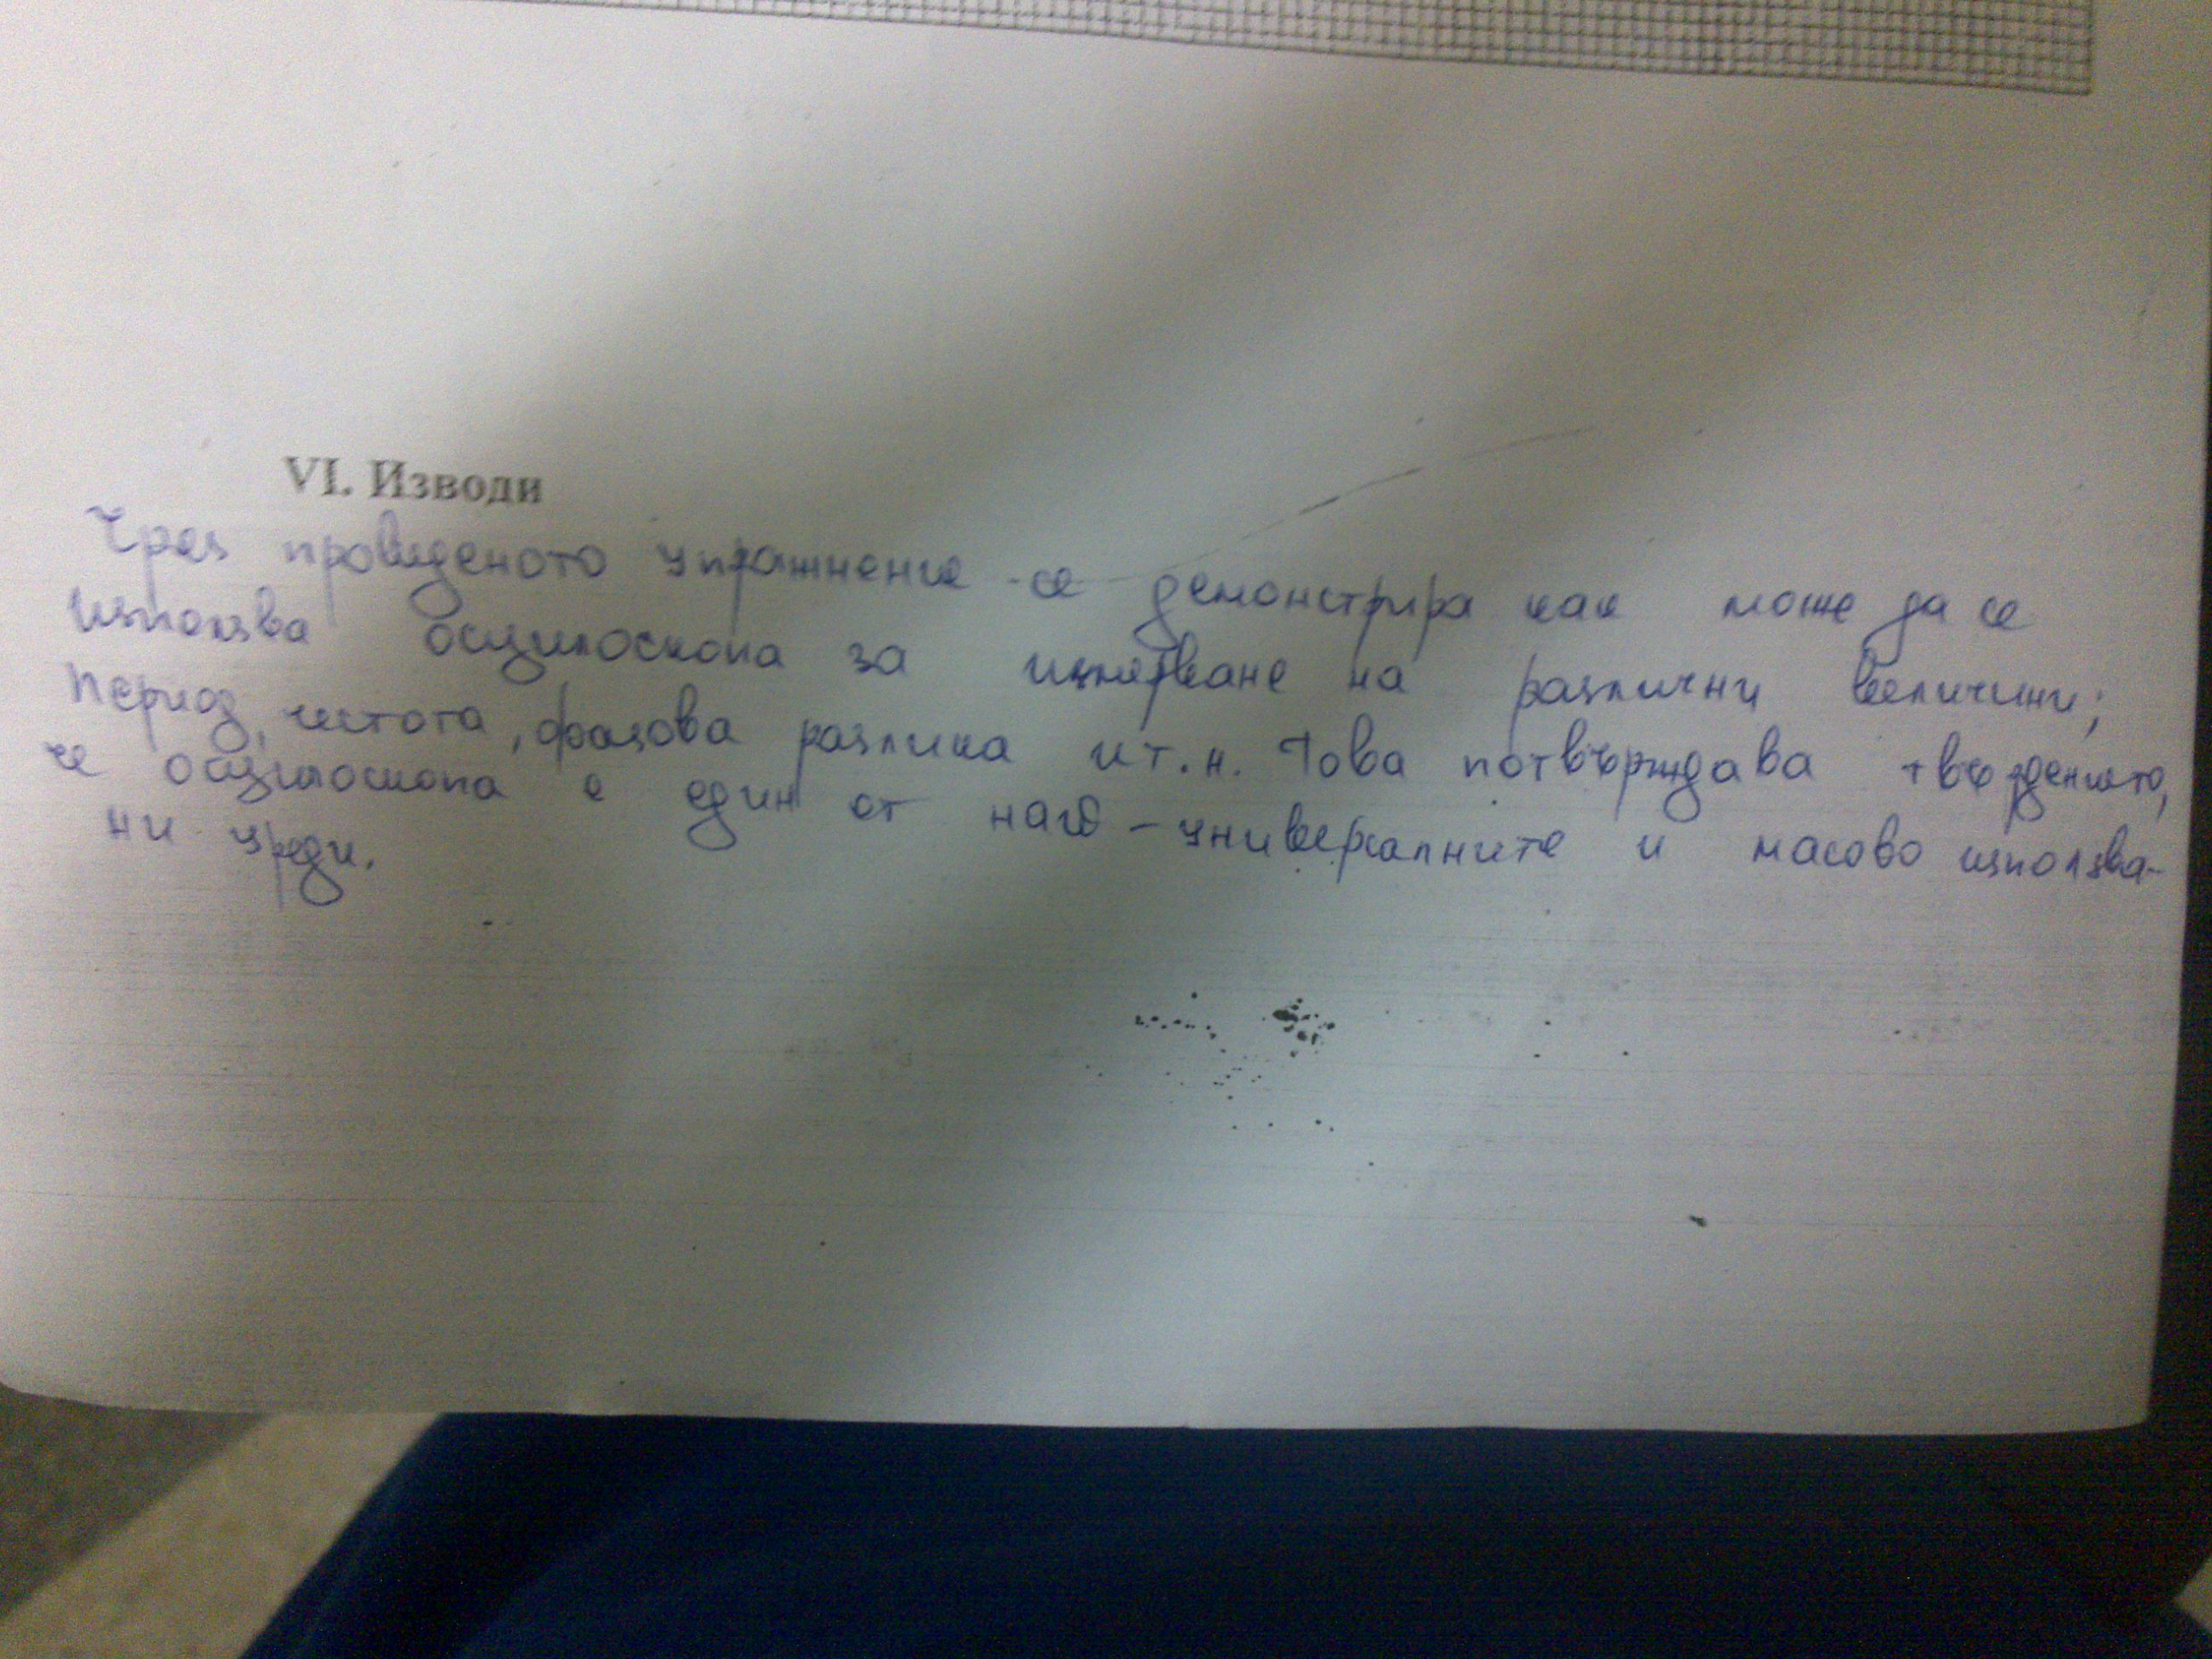 VI. Изводи
Чрез проведеното упражнение се демонстрира как може да се
използва осцилоскопа за измерване на различни величини;
период, честота, фазова разлика и т.н. Това потвърждава твърдението,
че осцилоскопа е един от най-универсалните и масово използва-
ни уреди.